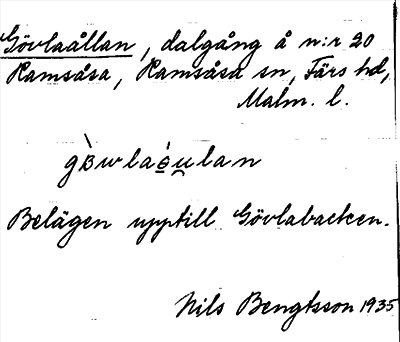 Gövlaållan, dalgång å n:r 20
Ramsåsa, Ramsåsa sn, Färs hd,
Malm. l.
Belägen upptill Gövlabacken.
Nils Bengtsson 1935